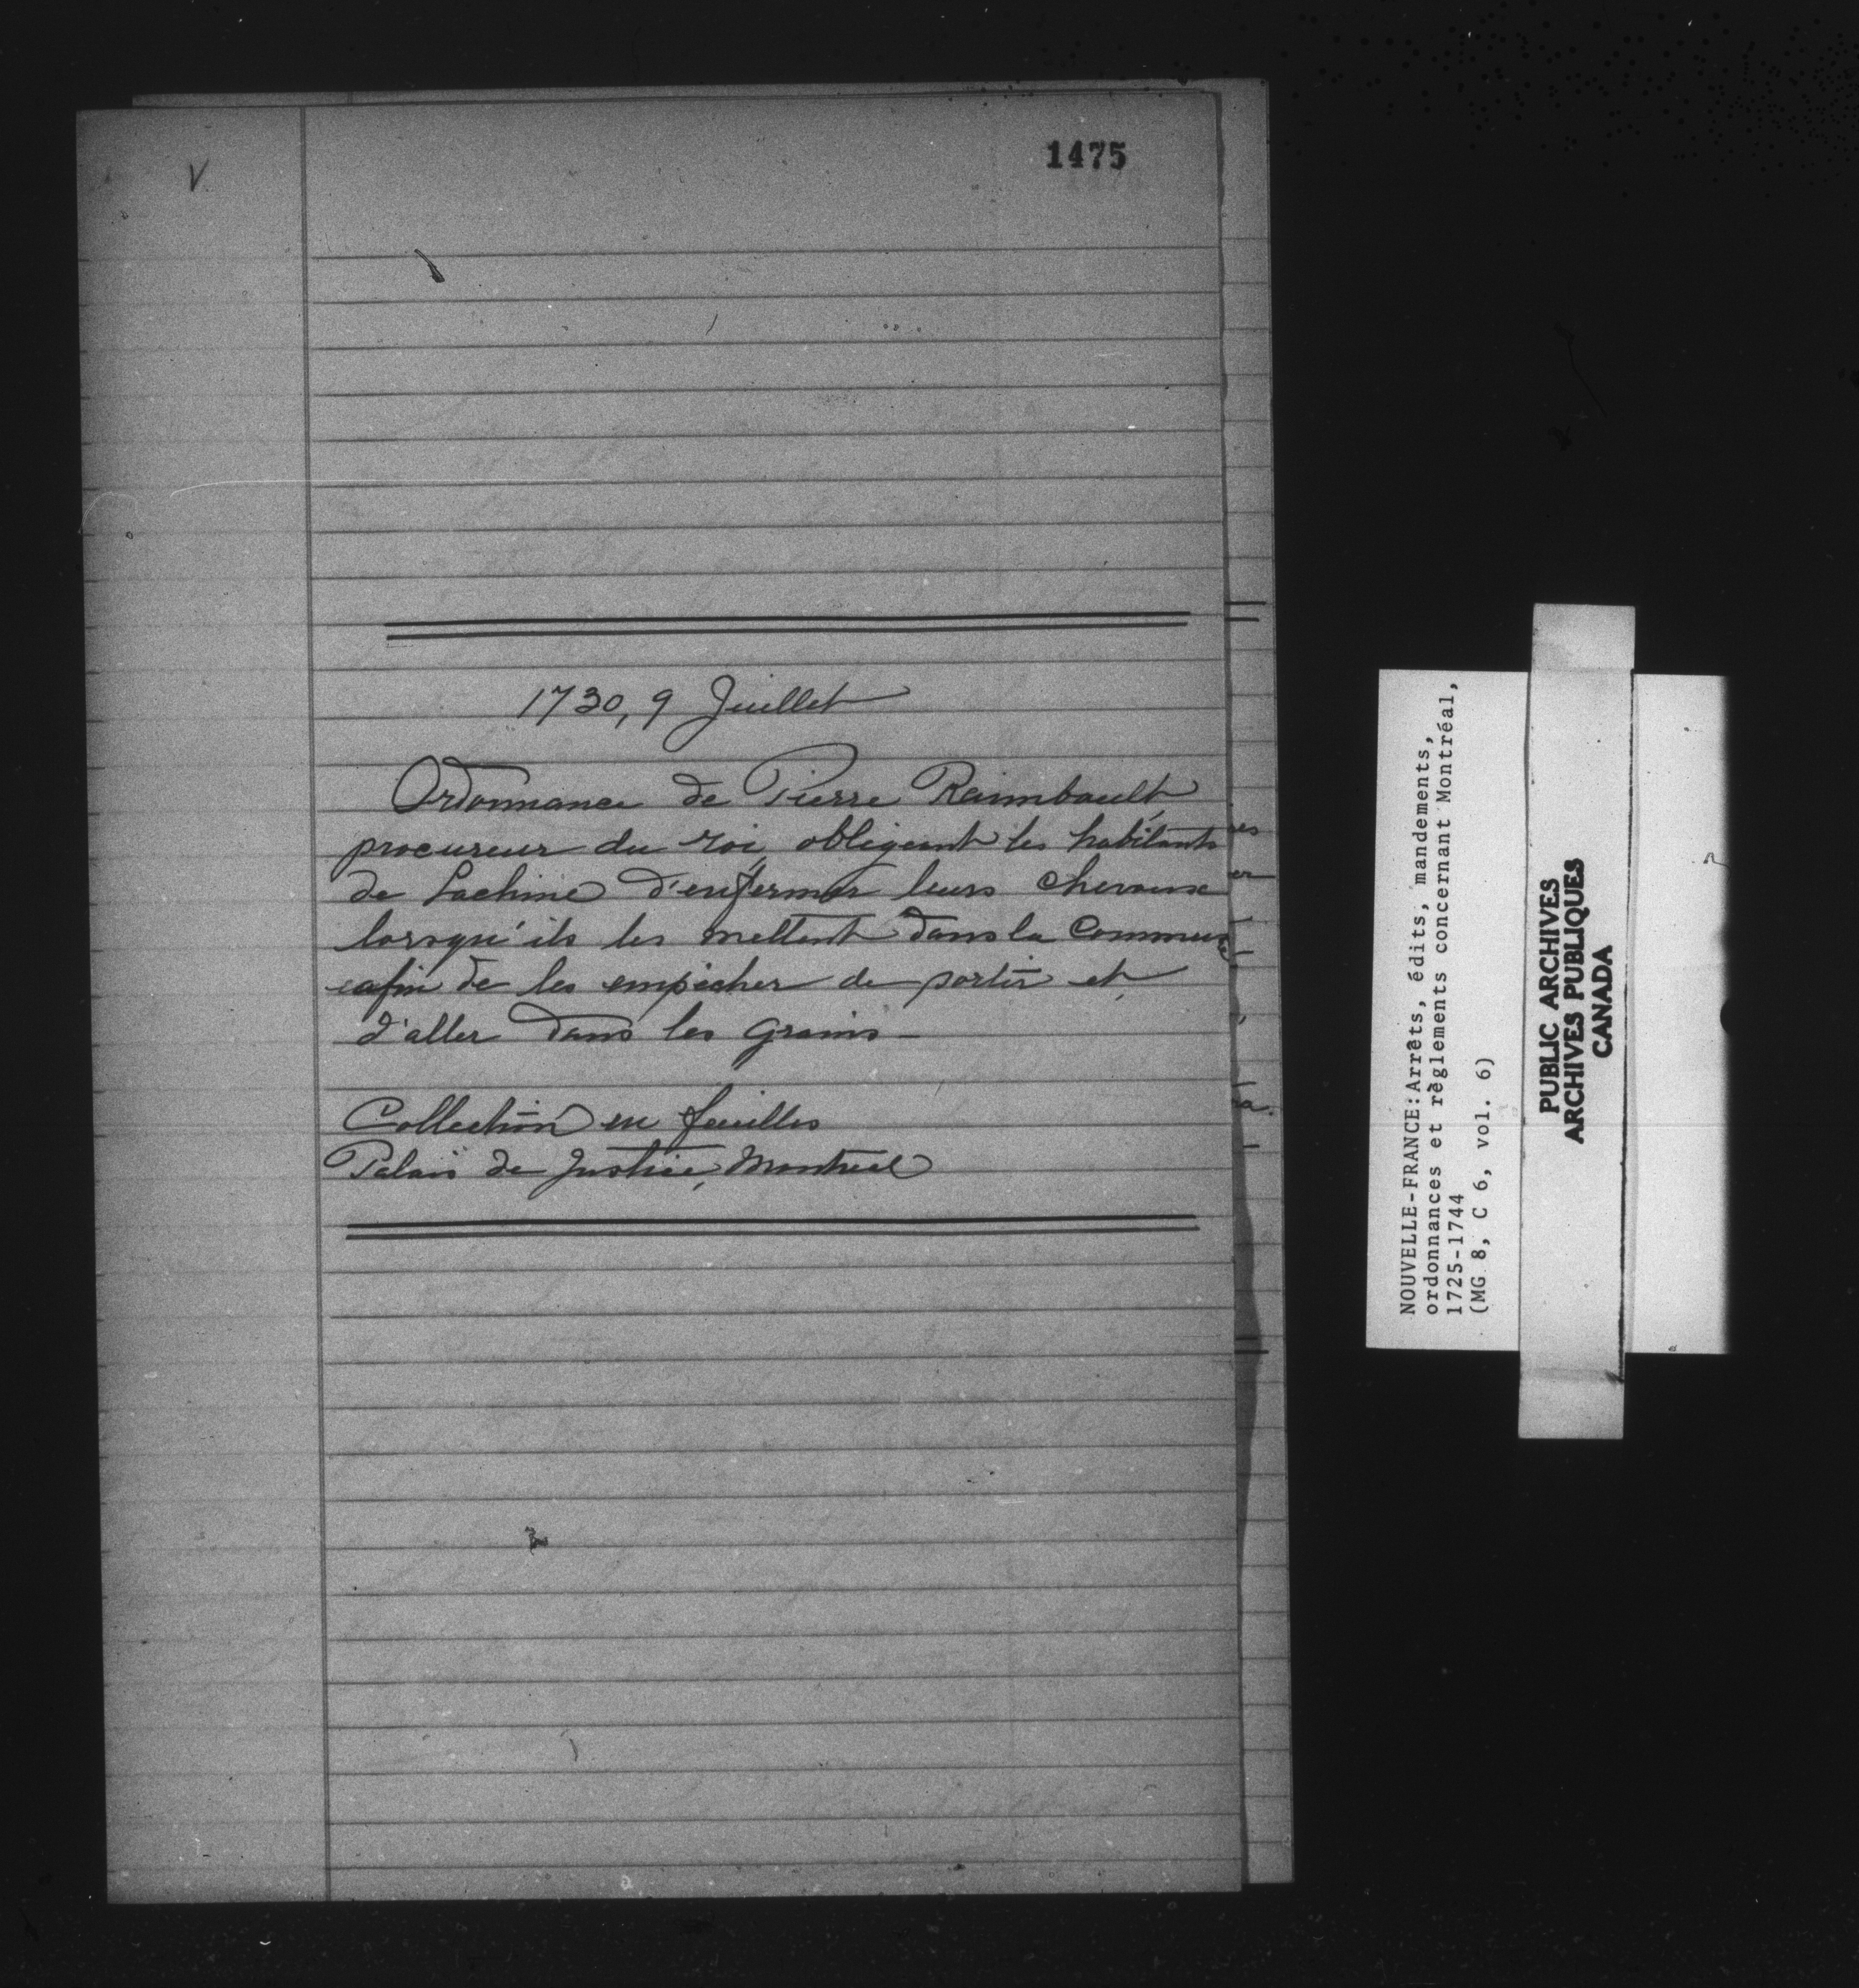 1475
V
1730, 9 Juillet
Ordonnance de Pierre Raimbault
procureur du roi obligeant les habitants
de Lachine d'enfermer leurs chevaux
lorsqu'ils les mettent dans la Commune
afin de les empêcher de sortir et
d'aller dans les grains -
Collection en feuilles
Palais de Justice, Montreal
NOUVELLE-FRANCE: Arrêts, édits, mandements,
ordonnances et règlements concernant Montréal,
1725-1744
(MG 8, C 6, vol. 6)
PUBLIC ARCHIVES
ARCHIVES PUBLIQUES
CANADA